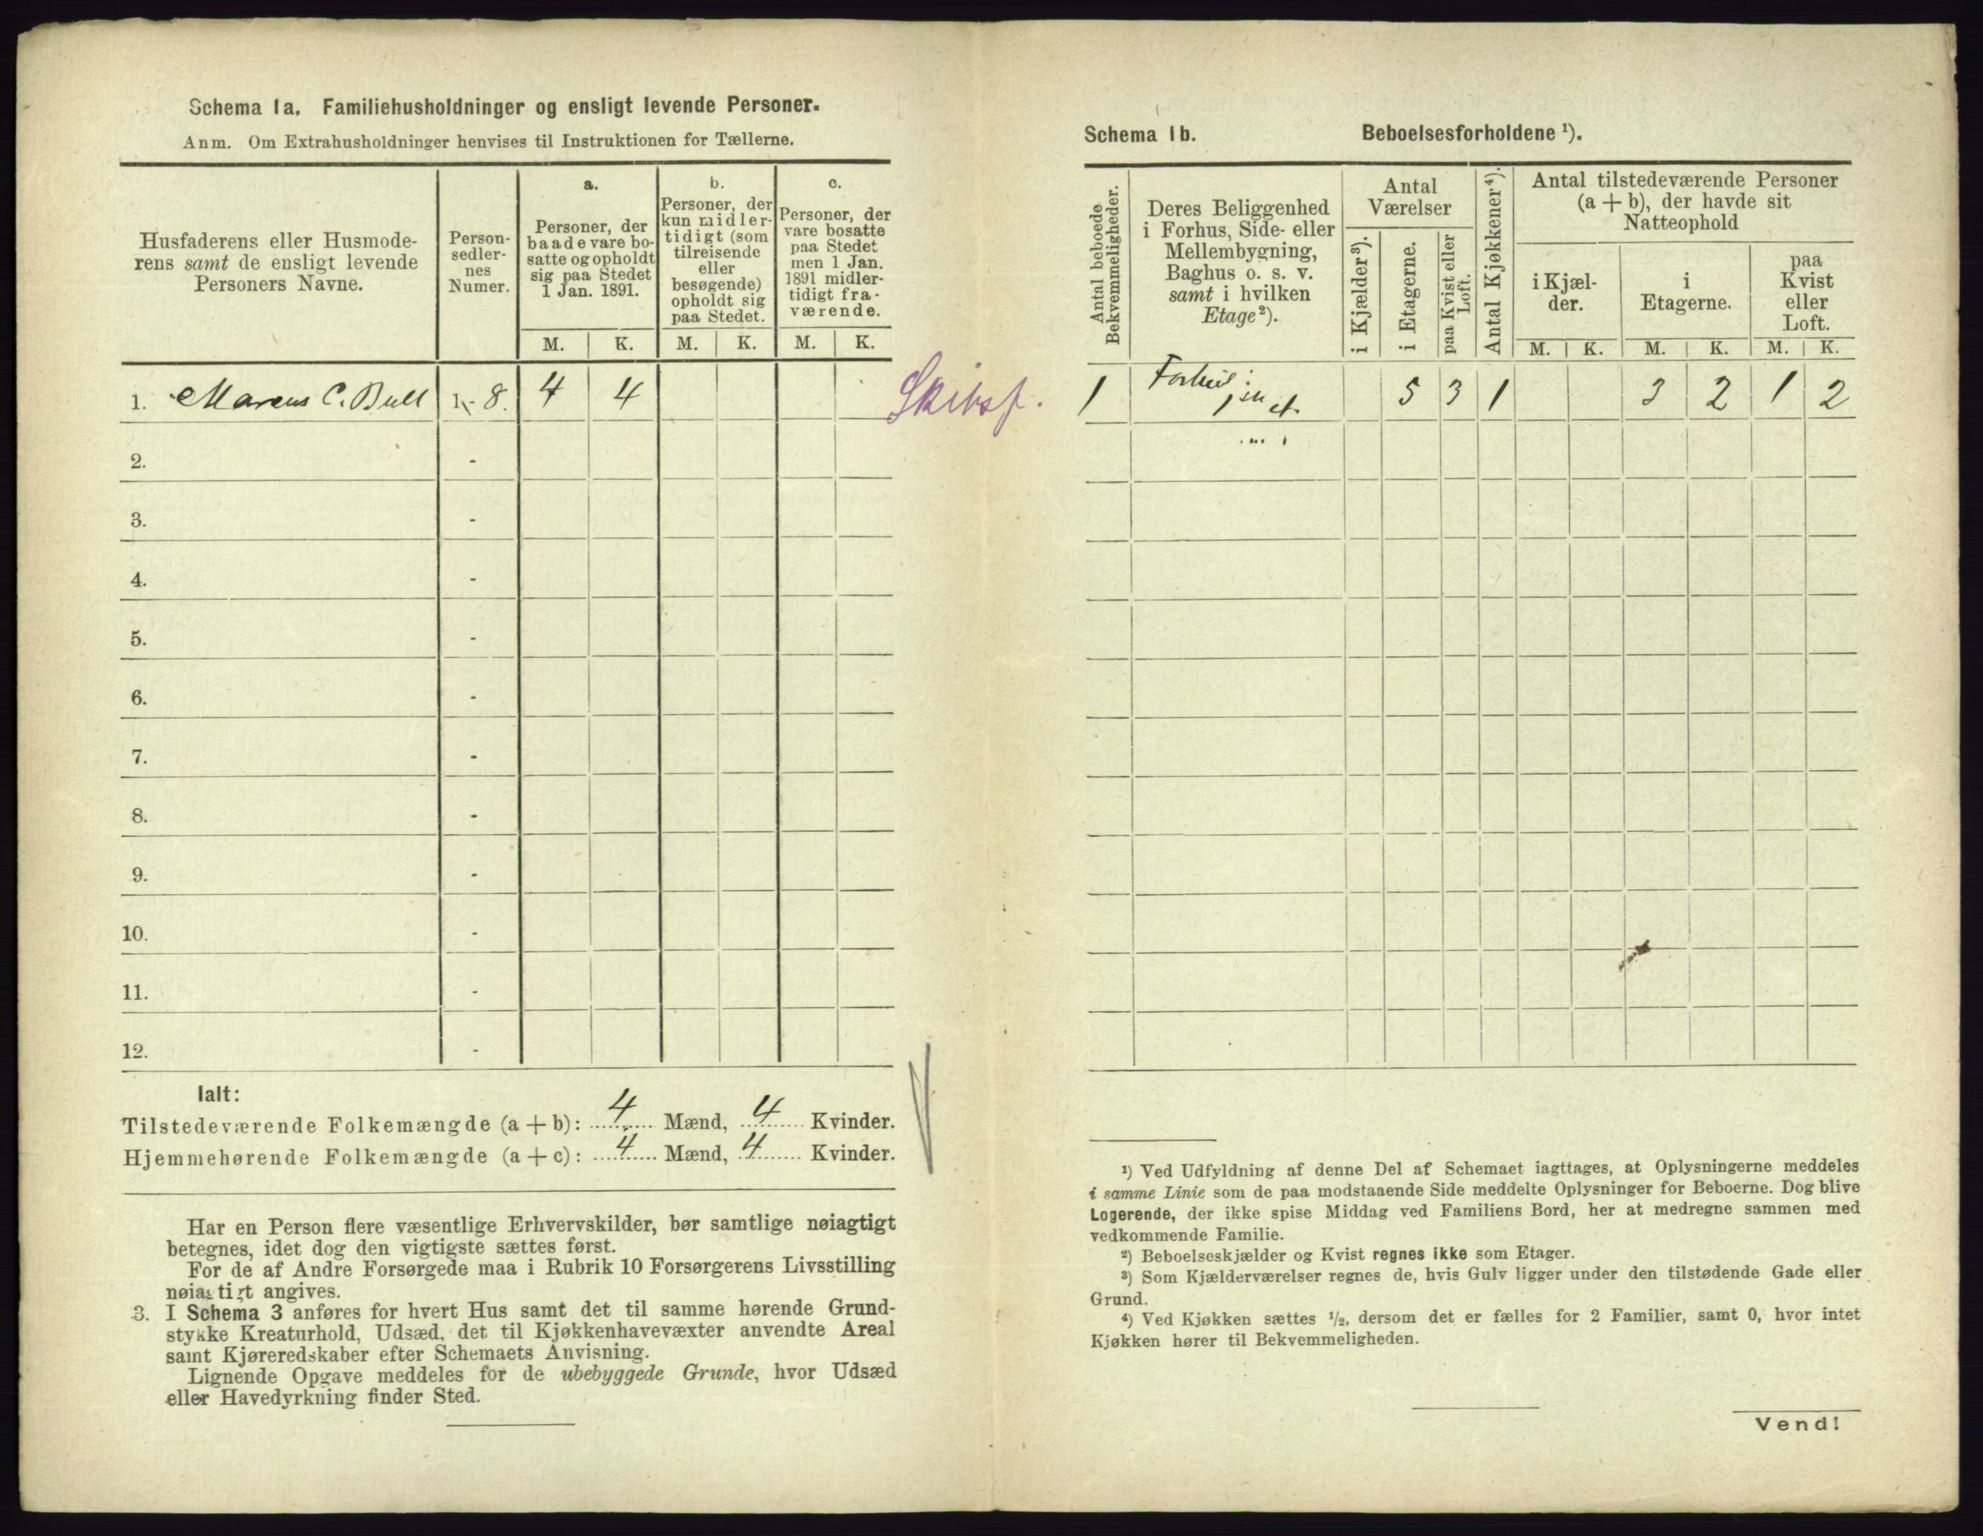 Schema 1a. Familiehusholdninger og ensligt levende Personer.
Anm. Om Extrahusholdninger henvises til Instruktionen for Tællerne.
Husfaderens eller Husmode-
rens samt de ensligt levende
Personers Navne.
Person-
sedler-
nes
Numer.
a.
Personer, der
baade vare bo-
satte og opholdt
sig paa Stedet
1 Jan. 1891.
b.
Personer, der
kun midler-
tidigt (som
tilreisende
eller
besøgende)
opholdt sig
paa Stedet.
c.
Personer, der
vare bosatte
paa Stedet
men 1 Jan.
1891 midler-
tidigt fra-
værende.
M. K. M. K. M. K.
1. Marcus C. Bull 1-8. 4 4
Skibsf.
2. -
3. -
4. -
5. -
6. -
7. -
8. -
9. -
10. -
11. -
12. -
Ialt:
Tilstedeværende Folkemængde (a + b): 4 Mænd, 4 Kvinder.
Hjemmehørende Folkemængde (a + c): 4 Mænd, 4 Kvinder.
Har en Person flere væsentlige Erhvervskilder, bør samtlige nøiagtigt
betegnes, idet dog den vigtigste sættes først.
For de af Andre Forsørgede maa i Rubrik 10 Forsørgerens Livsstilling
nøiagtigt angives.
3. I Schema 3 anføres for hvert Hus samt det til samme hørende Grund-
stykke Kreaturhold, Udsæd, det til Kjøkkenhavevæxter anvendte Areal
samt Kjøreredskaber efter Schemaets Anvisning.
Lignende Opgave meddeles for de ubebyggede Grunde, hvor Udsæd
eller Havedyrkning finder Sted.
Schema 1b. Beboelsesforholdene ¹).
Antal beboede
Bekvemmeligheder.
Deres Beliggenhed
i Forhus, Side- eller
Mellembygning,
Baghus o. s. v.
samt i hvilken
Etage²).
Antal
Værelser
i Kjælder³).
i Etagerne.
paa Kvist eller
Loft.
Antal Kjøkkener⁴).
Antal tilstedeværende Personer
(a + b), der havde sit
Natteophold
i Kjæl-
der.
i
Etagerne.
paa
Kvist
eller
Loft.
M. K. M. K. M. K.
1 5 3 1 3 2 1 2
¹) Ved Udfyldning af denne Del af Schemaet iagttages, at Oplysningerne meddeles
i samme Linie som de paa modstaaende Side meddelte Oplysninger for Beboerne. Dog blive
Logerende, der ikke spise Middag ved Familiens Bord, her at medregne sammen med
vedkommende Familie.
²) Beboelseskjælder og Kvist regnes ikke som Etager.
³) Som Kjælderværelser regnes de, hvis Gulv ligger under den tilstødende Gade eller
Grund.
⁴) Ved Kjøkken sættes ½, dersom det er fælles for 2 Familier, samt 0, hvor intet
Kjøkken hører til Bekvemmeligheden.
Vend!